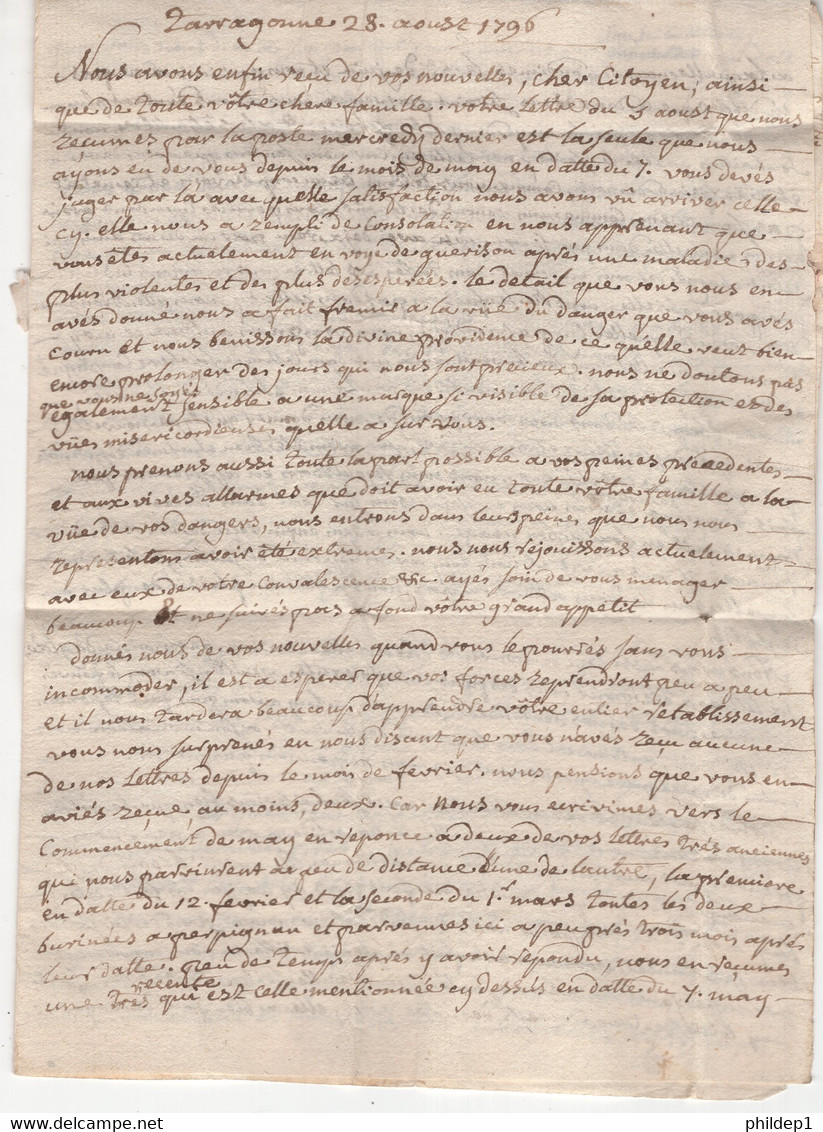 Tarragonne 28. aoust 1796
Nous avons enfin reçu de vos nouvelles, cher Citoyen, ainsi
que de toute vôtre chére famille. votre lettre du 5 aoust que nous
reçumes par la poste mercredy dernier est la seule que nous
ayons eu de vous depuis le mois de may en datte du 7. vous devés
juger par la avec quelle satisfaction nous avons vû arriver celle
cy. elle nous a rempli de consolation en nous apprenant que
vous étes actuelement en voye de guerison aprés une maladie des
plus violentes et des plus desesperées. le detail que vous nous en
avés donné nous a fait fremir a la vüe du danger que vous avés
couru et nous benissons la divine providence de ce qu'elle veut bien
encore prolonger des jours qui nous sont precieux. nous ne doutons pas
que vous ne soyés
egalement sensible a une marque si visible de sa protection et des
vües misericordieuses qu'elle a sur vous.
nous prenons aussi toute la part possible a vos peines precedentes
et aux vives allarmes que doit avoir eu toute vôtre famille a la
vüe de vos dangers, nous entrons dans leurs peines que nous nous
representons avoir été extremes. nous nous rejouissons actuelement
avec eux de votre convalescence &c. ayés soin de vous menager
beaucoup et ne suivés pas a fond vôtre grand appetit
donnés nous de vos nouvelles quand vous le pourrés sans vous
incommoder, il est a esperer que vos forces reprendront peu a peu
et il nous tardera beaucoup d'apprendre vôtre entier retablissement
vous nous surprenés en nous disant que vous n'avés reçu aucune
de nos lettres depuis le mois de fevrier. nous pensions que vous en
aviés reçue, au moins, deux. Car nous vous ecrivimes vers le
commencement de may en reponce a deux de vos lettres trés anciennes
qui nous parvinrent a peu de distance d'une de l'autre, la premiere
en datte du 12. fevrier et la seconde du 1.r mars toutes les deux
burinées a perpignan et parvenues ici a peu prés trois mois aprés
leur datte. peu de temps aprés y avoir repondu, nous en reçumes
recente
une trés qui est celle mentionnée cy dessus en datte du 7. may
phildep1